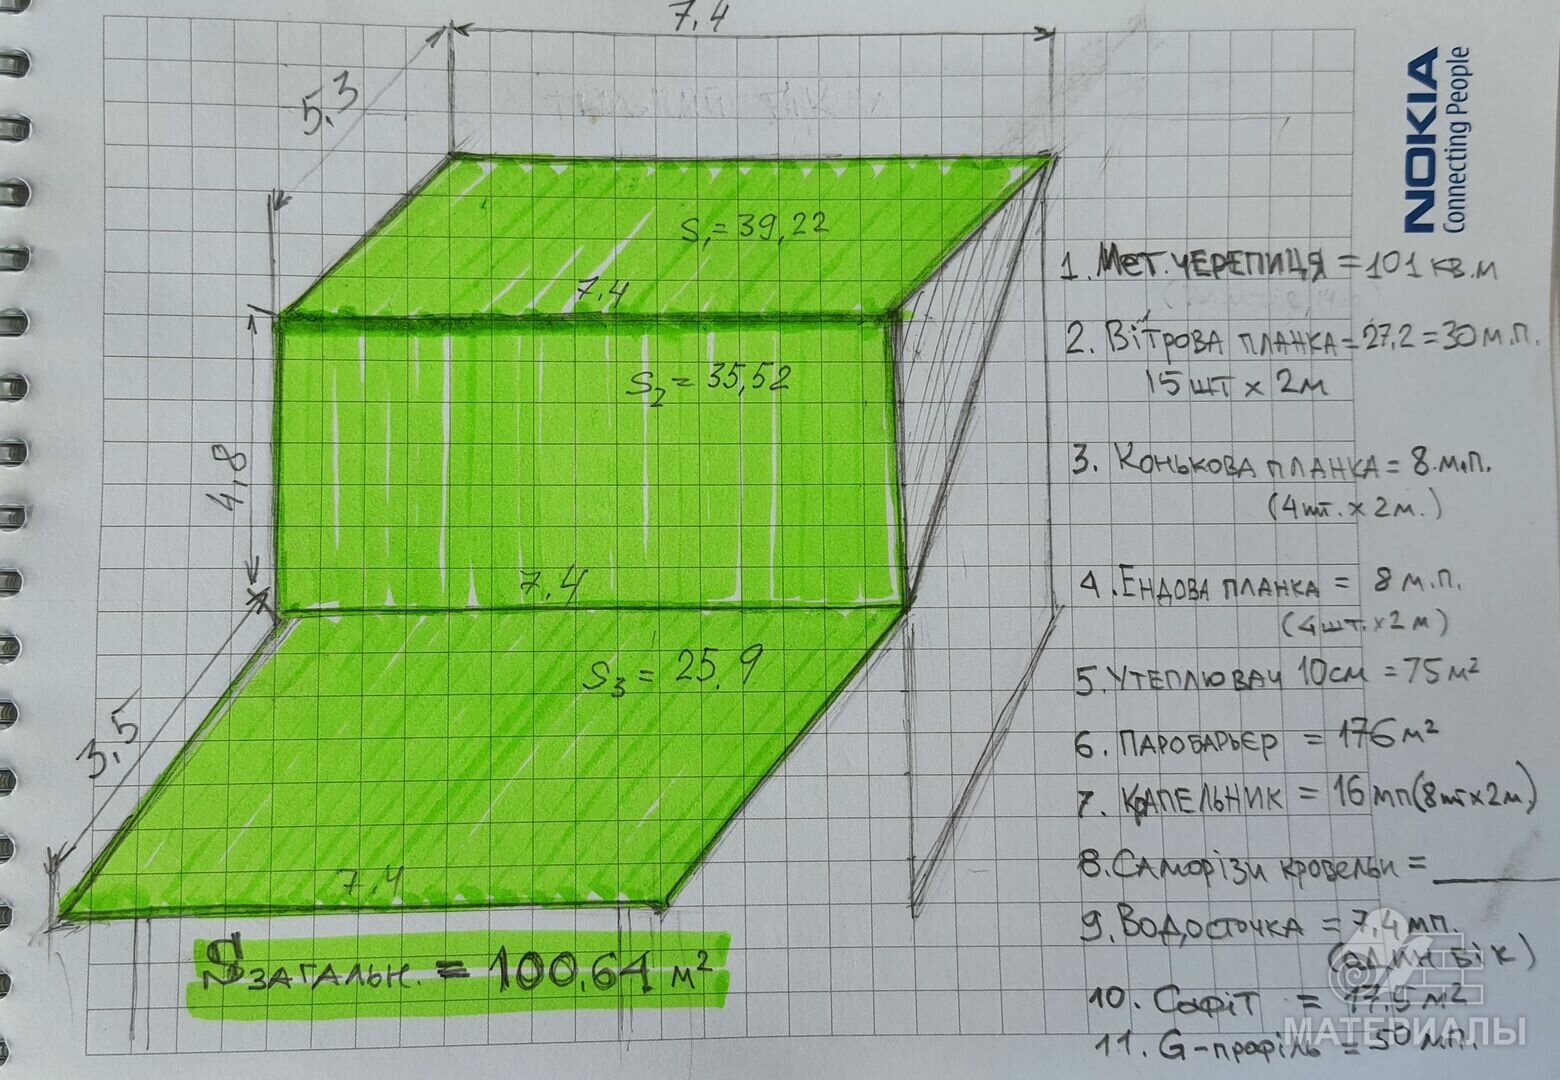 7,4
5,3
S₁ = 39,22
7,4
S₂ = 35,52
4,8
7,4
S₃ = 25,9
3,5
7,4
Sзагальн. = 100,64 м²
NOKIA
Connecting People
1. Мет. черепиця = 101 кв.м
2. Вітрова планка = 27,2 = 30 м.п.
15 шт x 2м
3. Конькова планка = 8 м.п.
(4шт. x 2м.)
4. Ендова планка = 8 м.п.
(4шт. x 2м)
5. Утеплювач 10см = 75 м²
6. Паробарьєр = 176 м²
7. Капельник = 16 мп (8шт x 2м)
8. Саморізи кровельн =
9. Водосточка = 7,4 мп.
(один бік)
10. Софіт = 17,5 м²
11. G-профіль = 50 мп.
МАТЕРИАЛЫ